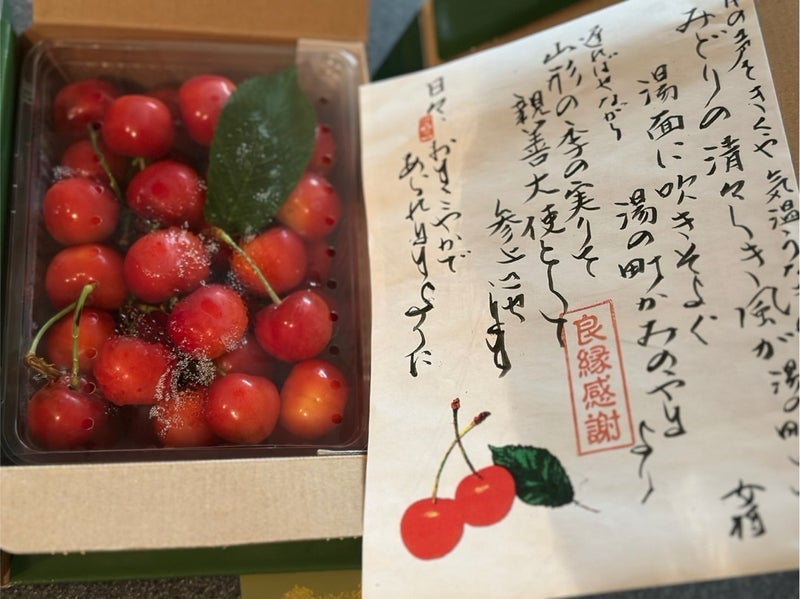 の声をきくや 気温うなぎ
みどりの清々しき風が
湯面に吹きそよぐ
湯の町かみのやまより
女将
遅ればせながら
山形の季の実りを
親善大使として
参上させます
日々、おすこやかで
あられますように
良縁感謝